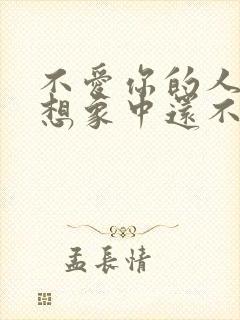 不愛你的人
想象中還不
孟長情